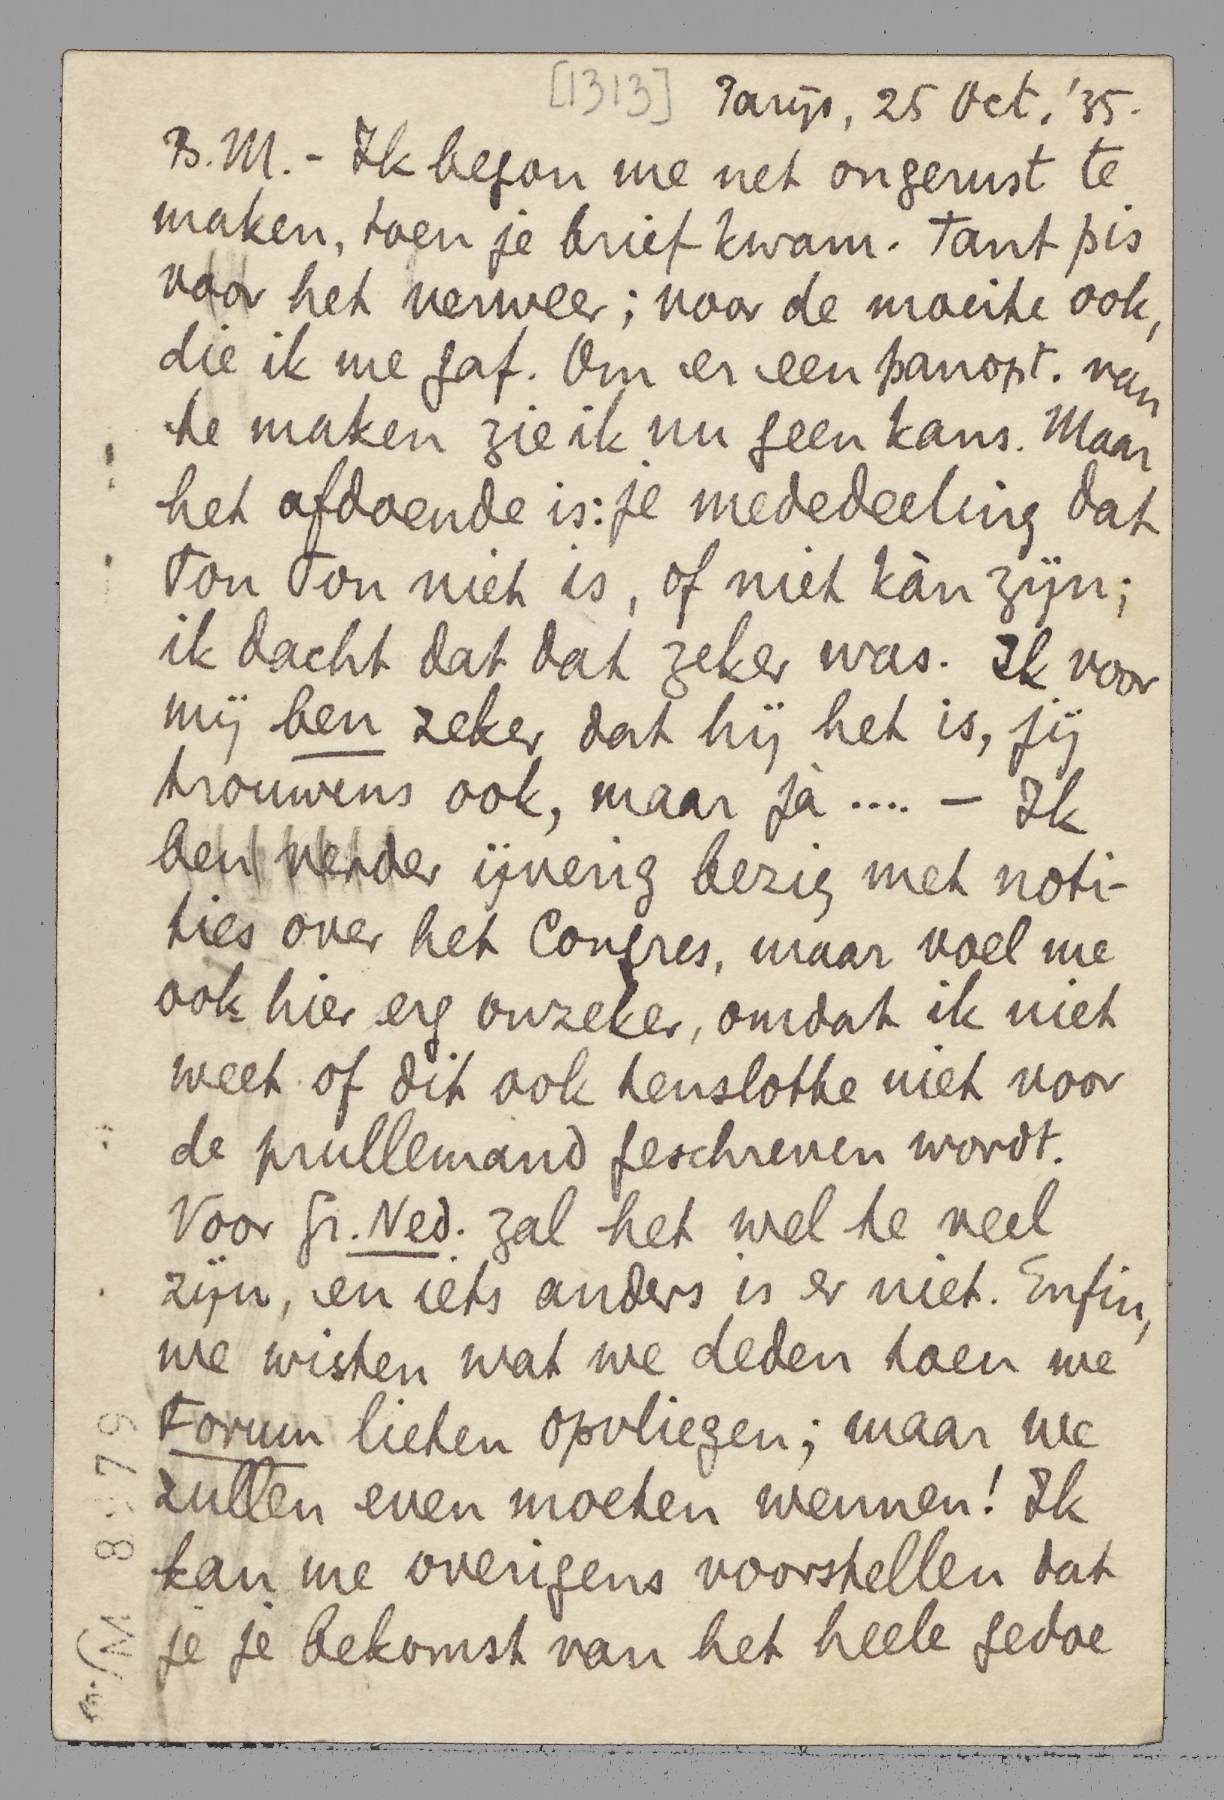 [1313] Parijs, 25 Oct. '35.
B.M. - Ik begon me net ongerust te
maken, toen je brief kwam. Tant pis
voor het verweer; voor de moeite ook,
die ik me gaf. Om er een panopt. van
te maken zie ik nu geen kans. Maar
het afdoende is: je mededeeling dat
Ton Ton niet is, of niet kàn zijn;
ik dacht dat dat zeker was. Ik voor
mij ben zeker dat hij het is, jij
trouwens ook, maar jà .... - Ik
ben verder ijverig bezig met noti-
ties over het Congres, maar voel me
ook hier erg onzeker, omdat ik niet
weet of dit ook tenslotte niet voor
de prullemand geschreven wordt.
Voor Gr. Ned. zal het wel te veel
zijn, en iets anders is er niet. Enfin,
we wisten wat we deden toen we
Forum lieten opvliegen; maar we
zullen even moeten wennen! Ik
kan me overigens voorstellen dat
je je bekomst van het heele gedoe